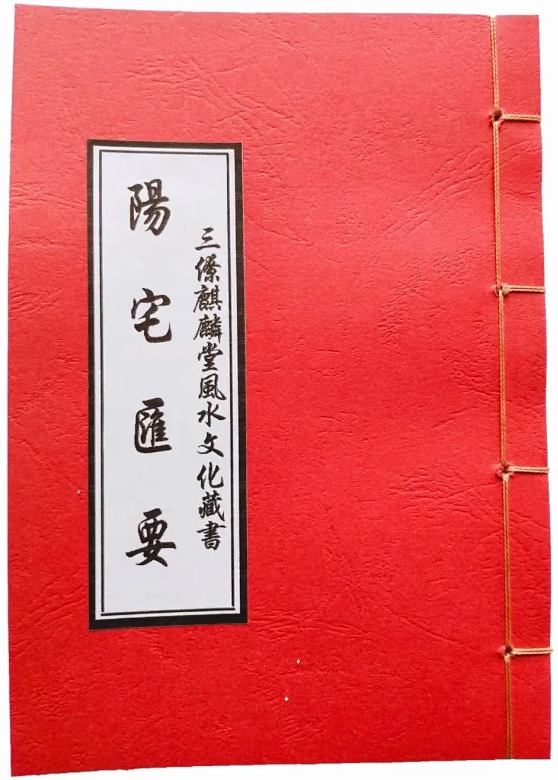 三僚麒麟堂風水文化藏書
陽宅匯要